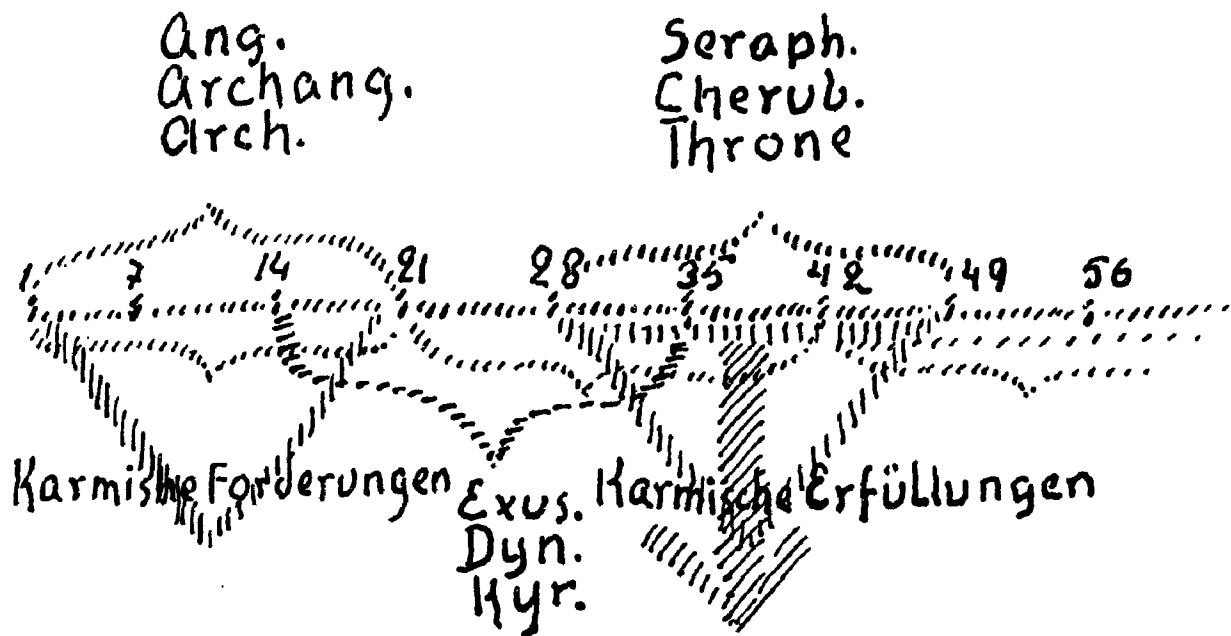 Ang.
Archang.
Arch.
Seraph.
Cherub.
Throne
1 7 14 21 28 35 42 49 56
Karmische Forderungen
Exus.
Dyn.
Kyr.
Karmische Erfüllungen